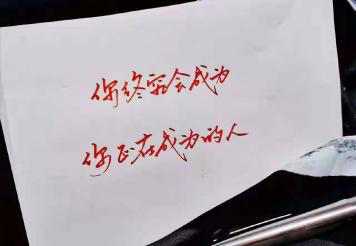 你终究会成为
你正在成为的人